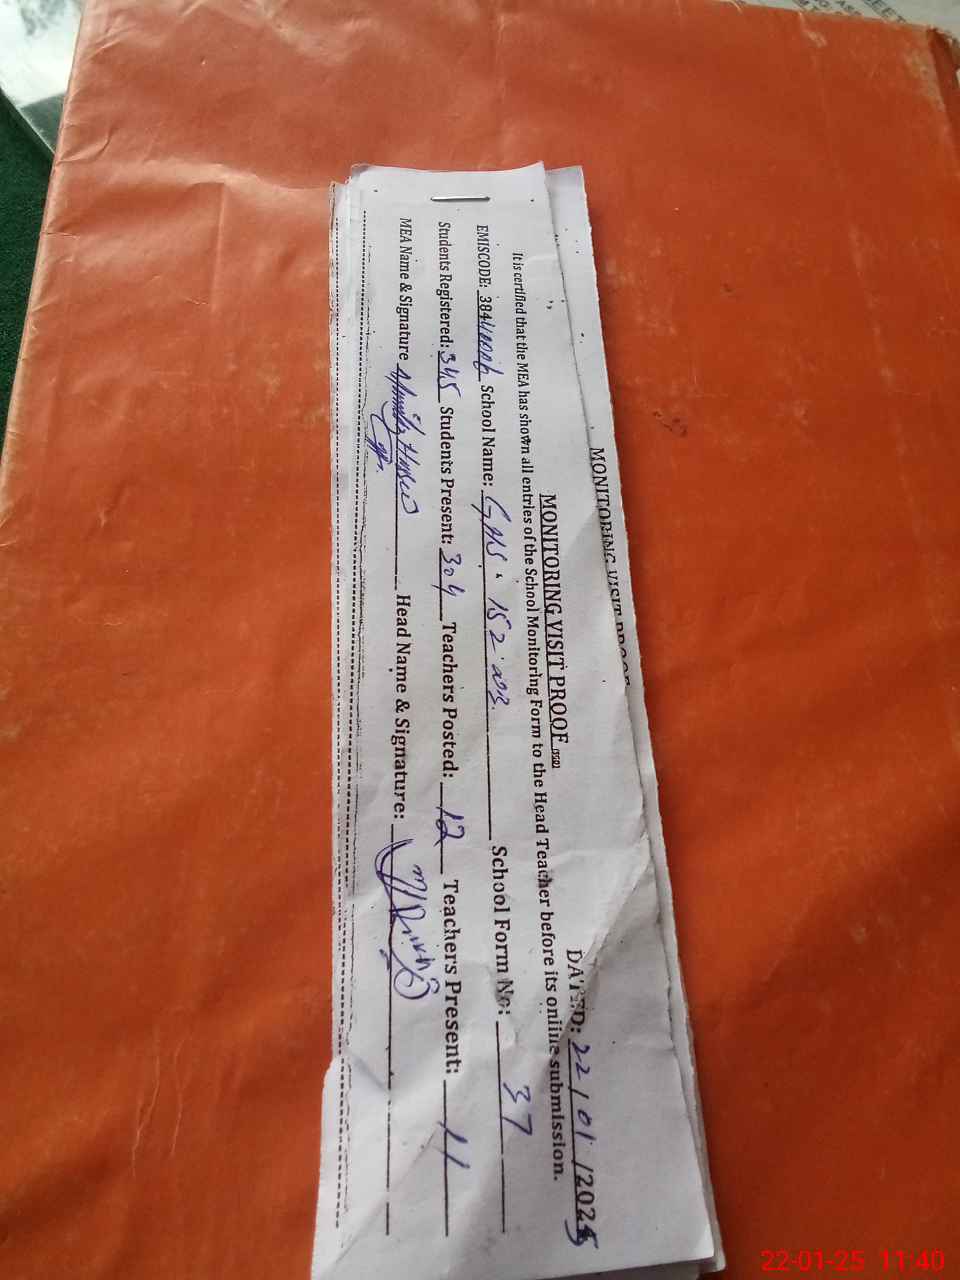 MONITORING VISIT PROOF
MONITORING VISIT PROOF (SSD)
DATED: 22/01/2025
It is certified that the MEA has shown all entries of the School Monitoring Form to the Head Teacher before its online submission.
EMISCODE: 384 School Name: GHS. 152 School Form No: 37
Students Registered: 345 Students Present: 304 Teachers Posted: 12 Teachers Present: 11
MEA Name & Signature Head Name & Signature:
22-01-25 11:40